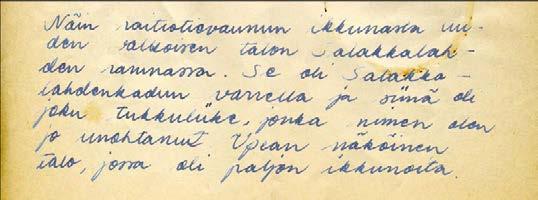 Näin raitiotievaunun ikkunasta uu-
den valkoisen talon Salakkalah-
den rannassa. Se oli Salakka-
lahdenkadun varrella ja siinä oli
joku tukkuliike, jonka nimen olen
jo unohtanut Upean näköinen
talo, jossa oli paljon ikkunoita.